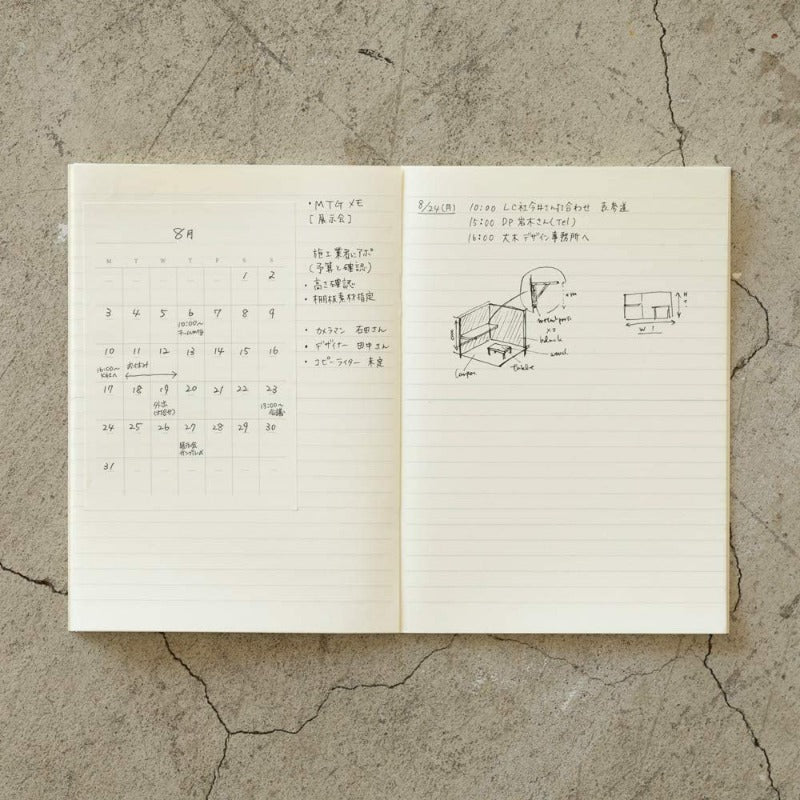 8月
M T W T F S S
1 2
3 4 5 6 7 8 9
10:00〜
10 11 12 13 14 15 16
16:00〜 お休み
17 18 19 20 21 22 23
外出 19:00〜
会議
24 25 26 27 28 29 30
展示会
31
・MTG メモ
[展示会]
施工業者にアポ
(予算と確認)
・高さ確認
・棚板素材指定
・カメラマン 石田さん
・デザイナー 田中さん
・コピーライター 未定
8/24(月) 10:00 LC社今井さん打合わせ 表参道
15:00 DP 岩木さん(Tel)
16:00 大木デザイン事務所へ
black
wood
table
W
H